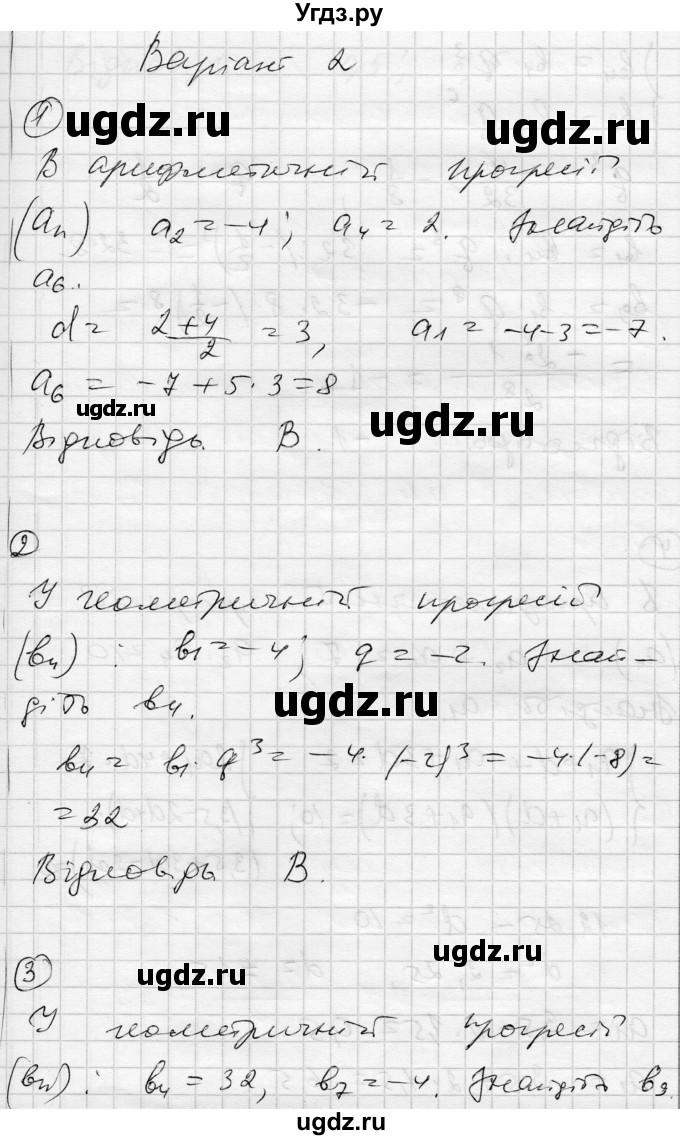 Угдз.ру
Варіант 2
1 ugdz.ru ugdz.ru
В арифметичній прогресії
(aₙ) a₂ = -4; a₄ = 2. Знайдіть
a₆.
d = (2+4)/2 = 3, a₁ = -4-3 = -7.
a₆ = -7 + 5·3 = 8
ugdz.ru ugdz.ru
Відповідь В.
2
У геометричній прогресії
(bₙ): b₁ = -4; q = -2. Знай-
діть b₄.
ugdz.ru
b₄ = b₁·q³ = -4·(-2)³ = -4·(-8) =
= 32
Відповідь В.
3 ugdz.ru ugdz.ru
У геометричній прогресії
(bₙ): b₄ = 32, b₇ = -4. Знайдіть b₉.
ugdz.ru